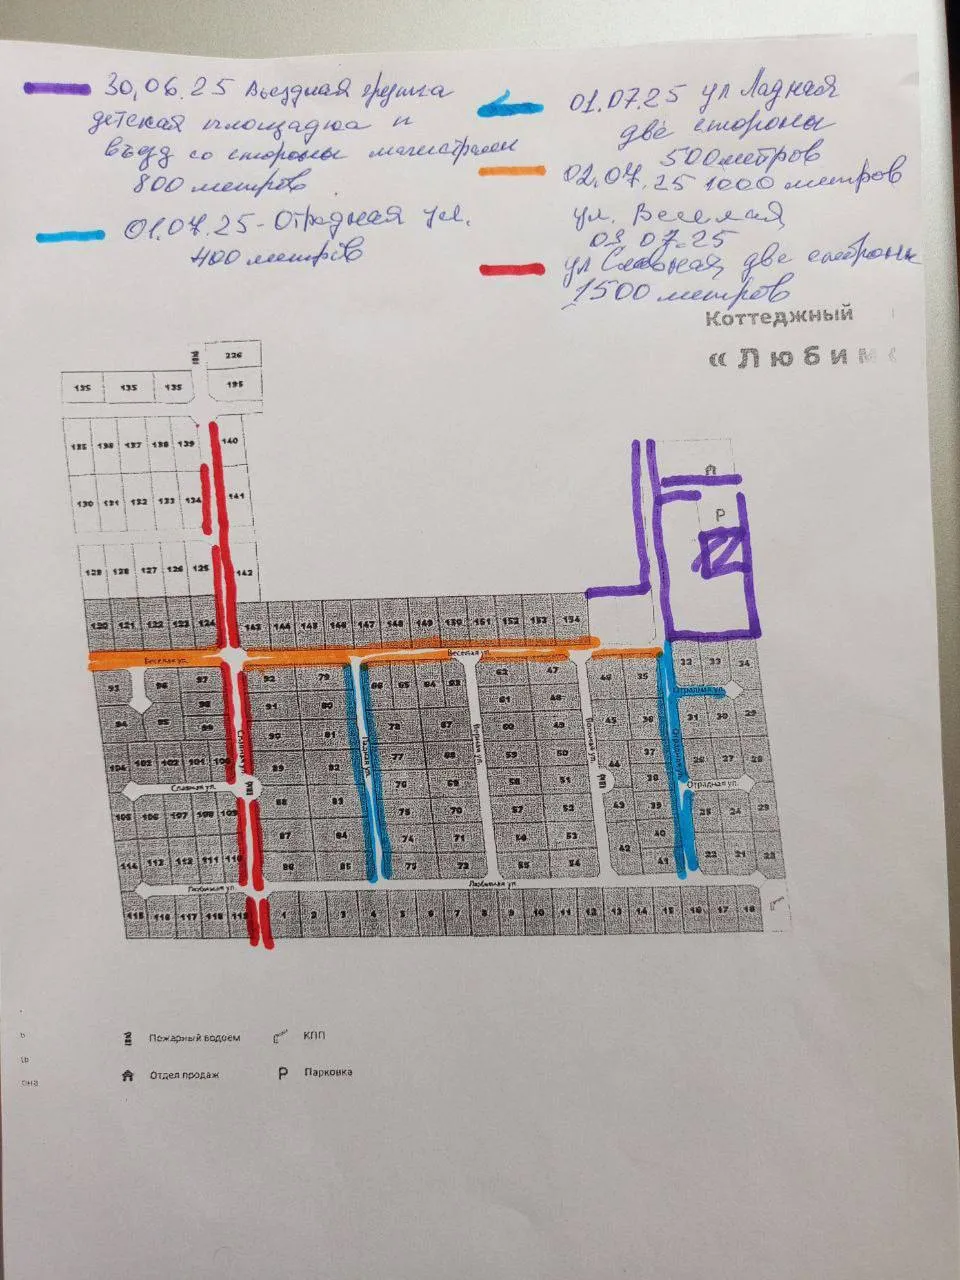 30.06.25 Въездная группа
детская площадка и
въезд со стороны магистрали
800 метров
01.07.25 - Отрадная ул.
400 метров
01.07.25 ул Ладная
две стороны
500 метров
02.07.25 1000 метров
ул. Веселая
03.07.25
ул Славная две стороны
1500 метров
Коттеджный
«Любим
226
135 135 135 195
135 136 137 138 139 140
130 131 132 133 134 141
129 128 127 126 125 142
120 121 122 123 124 143 144 145 146 147 148 149 150 151 152 153 154
Р
Веселая ул. Веселая ул.
93 96 97 92 79 66 65 64 63 62 47 46 35 32 33 34
98 91 80 61 48 Отрадная ул.
94 95 99 90 81 78 67 60 49 45 36 31 30 29
Славная ул. Ладная ул. Отрадная ул.
104 103 102 101 100 89 82 77 68 59 50 44 37 26 27 28
Славная ул. 76 69 58 51 38 Отрадная ул.
105 106 107 108 109 88 83 75 70 57 52 43 39 25 24 23
87 84 74 71 56 53 42 40
114 113 112 111 110 86 85 73 72 55 54 41 22 21
Любимая ул. Любимая ул.
115 116 117 118 119 1 2 3 4 5 6 7 8 9 10 11 12 13 14 15 16 17 18
Пожарный водоем
КПП
Отдел продаж
Р Парковка
она